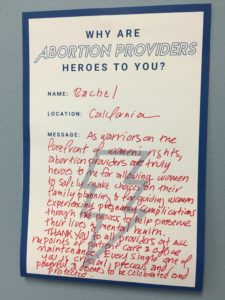 WHY ARE
ABORTION PROVIDERS
HEROES TO YOU?
NAME: Rachel
LOCATION: California
MESSAGE: As warriors on the
forefront of women's rights,
abortion providers are truly
heroes to me for allowing women
to safely make choices on their
family planning & for guiding women
experiencing pregnancy complications
through the process to help preserve
their lives & mental health.
THANK YOU to all providers at all
points of patient care & office
maintenance. Every single one of
you is critical, precious and
powerful & deserves to be celebrated and
protected.